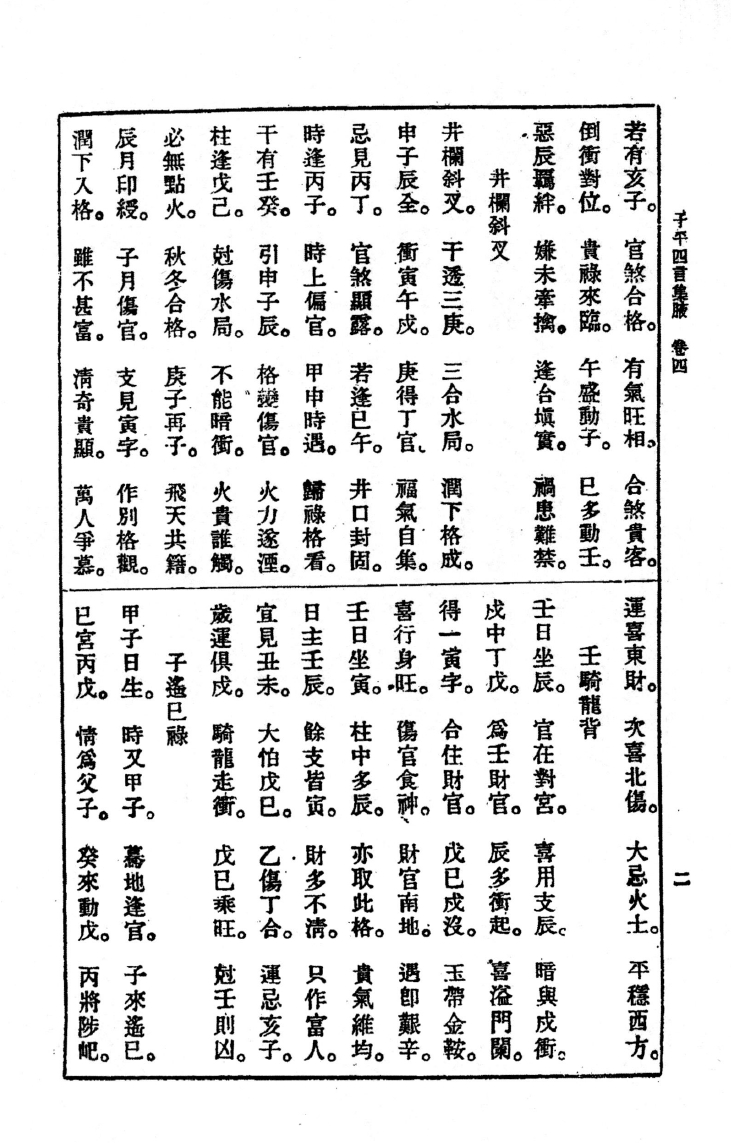 子平四言集腋　卷四
二
若有亥子。官煞合格。有氣旺相、合煞貴客。
倒衝對位。貴祿來臨。午盛動子。巳多動壬。
惡辰羈絆。嫌未牽擒。逢合塡實。禍患難禁。
井欄斜叉
井欄斜叉。干透三庚。三合水局。潤下格成。
申子辰全。衝寅午戌。庚得丁官、福氣自集。
忌見丙丁。官煞顯露。若逢巳午。井口封固。
時逢丙子。時上偏官。甲申時遇。歸祿格看。
干有壬癸。引申子辰。格變傷官。火力遂湮。
柱逢戊己。尅傷水局。不能暗衝。火貴誰觸。
必無點火。秋冬合格。庚子再子。飛天共籍。
辰月印綬。子月傷官。支見寅字。作別格觀。
潤下入格。雖不甚富。清奇貴顯。萬人爭慕。
運喜東財。次喜北傷。大忌火土。平穩西方。
壬騎龍背
壬日坐辰。官在對宮。喜用支辰。暗與戌衝。
戌中丁戊。爲壬財官。辰多衝起。喜溢門闌。
得一寅字。合住財官。戊巳戌沒。玉帶金鞍。
喜行身旺。傷官食神。財官南地。遇卽艱辛。
壬日坐寅。柱中多辰。亦取此格。貴氣維均。
日主壬辰。餘支皆寅。財多不清。只作富人。
宜見丑未。大怕戊巳。乙傷丁合。運忌亥子。
歲運俱戌。騎龍走衝。戊巳乘旺。尅壬則凶。
子遙巳祿
甲子日生。時又甲子。驀地逢官。子來遙巳。
巳宮丙戊。情爲父子。癸來動戊。丙將陟屺。